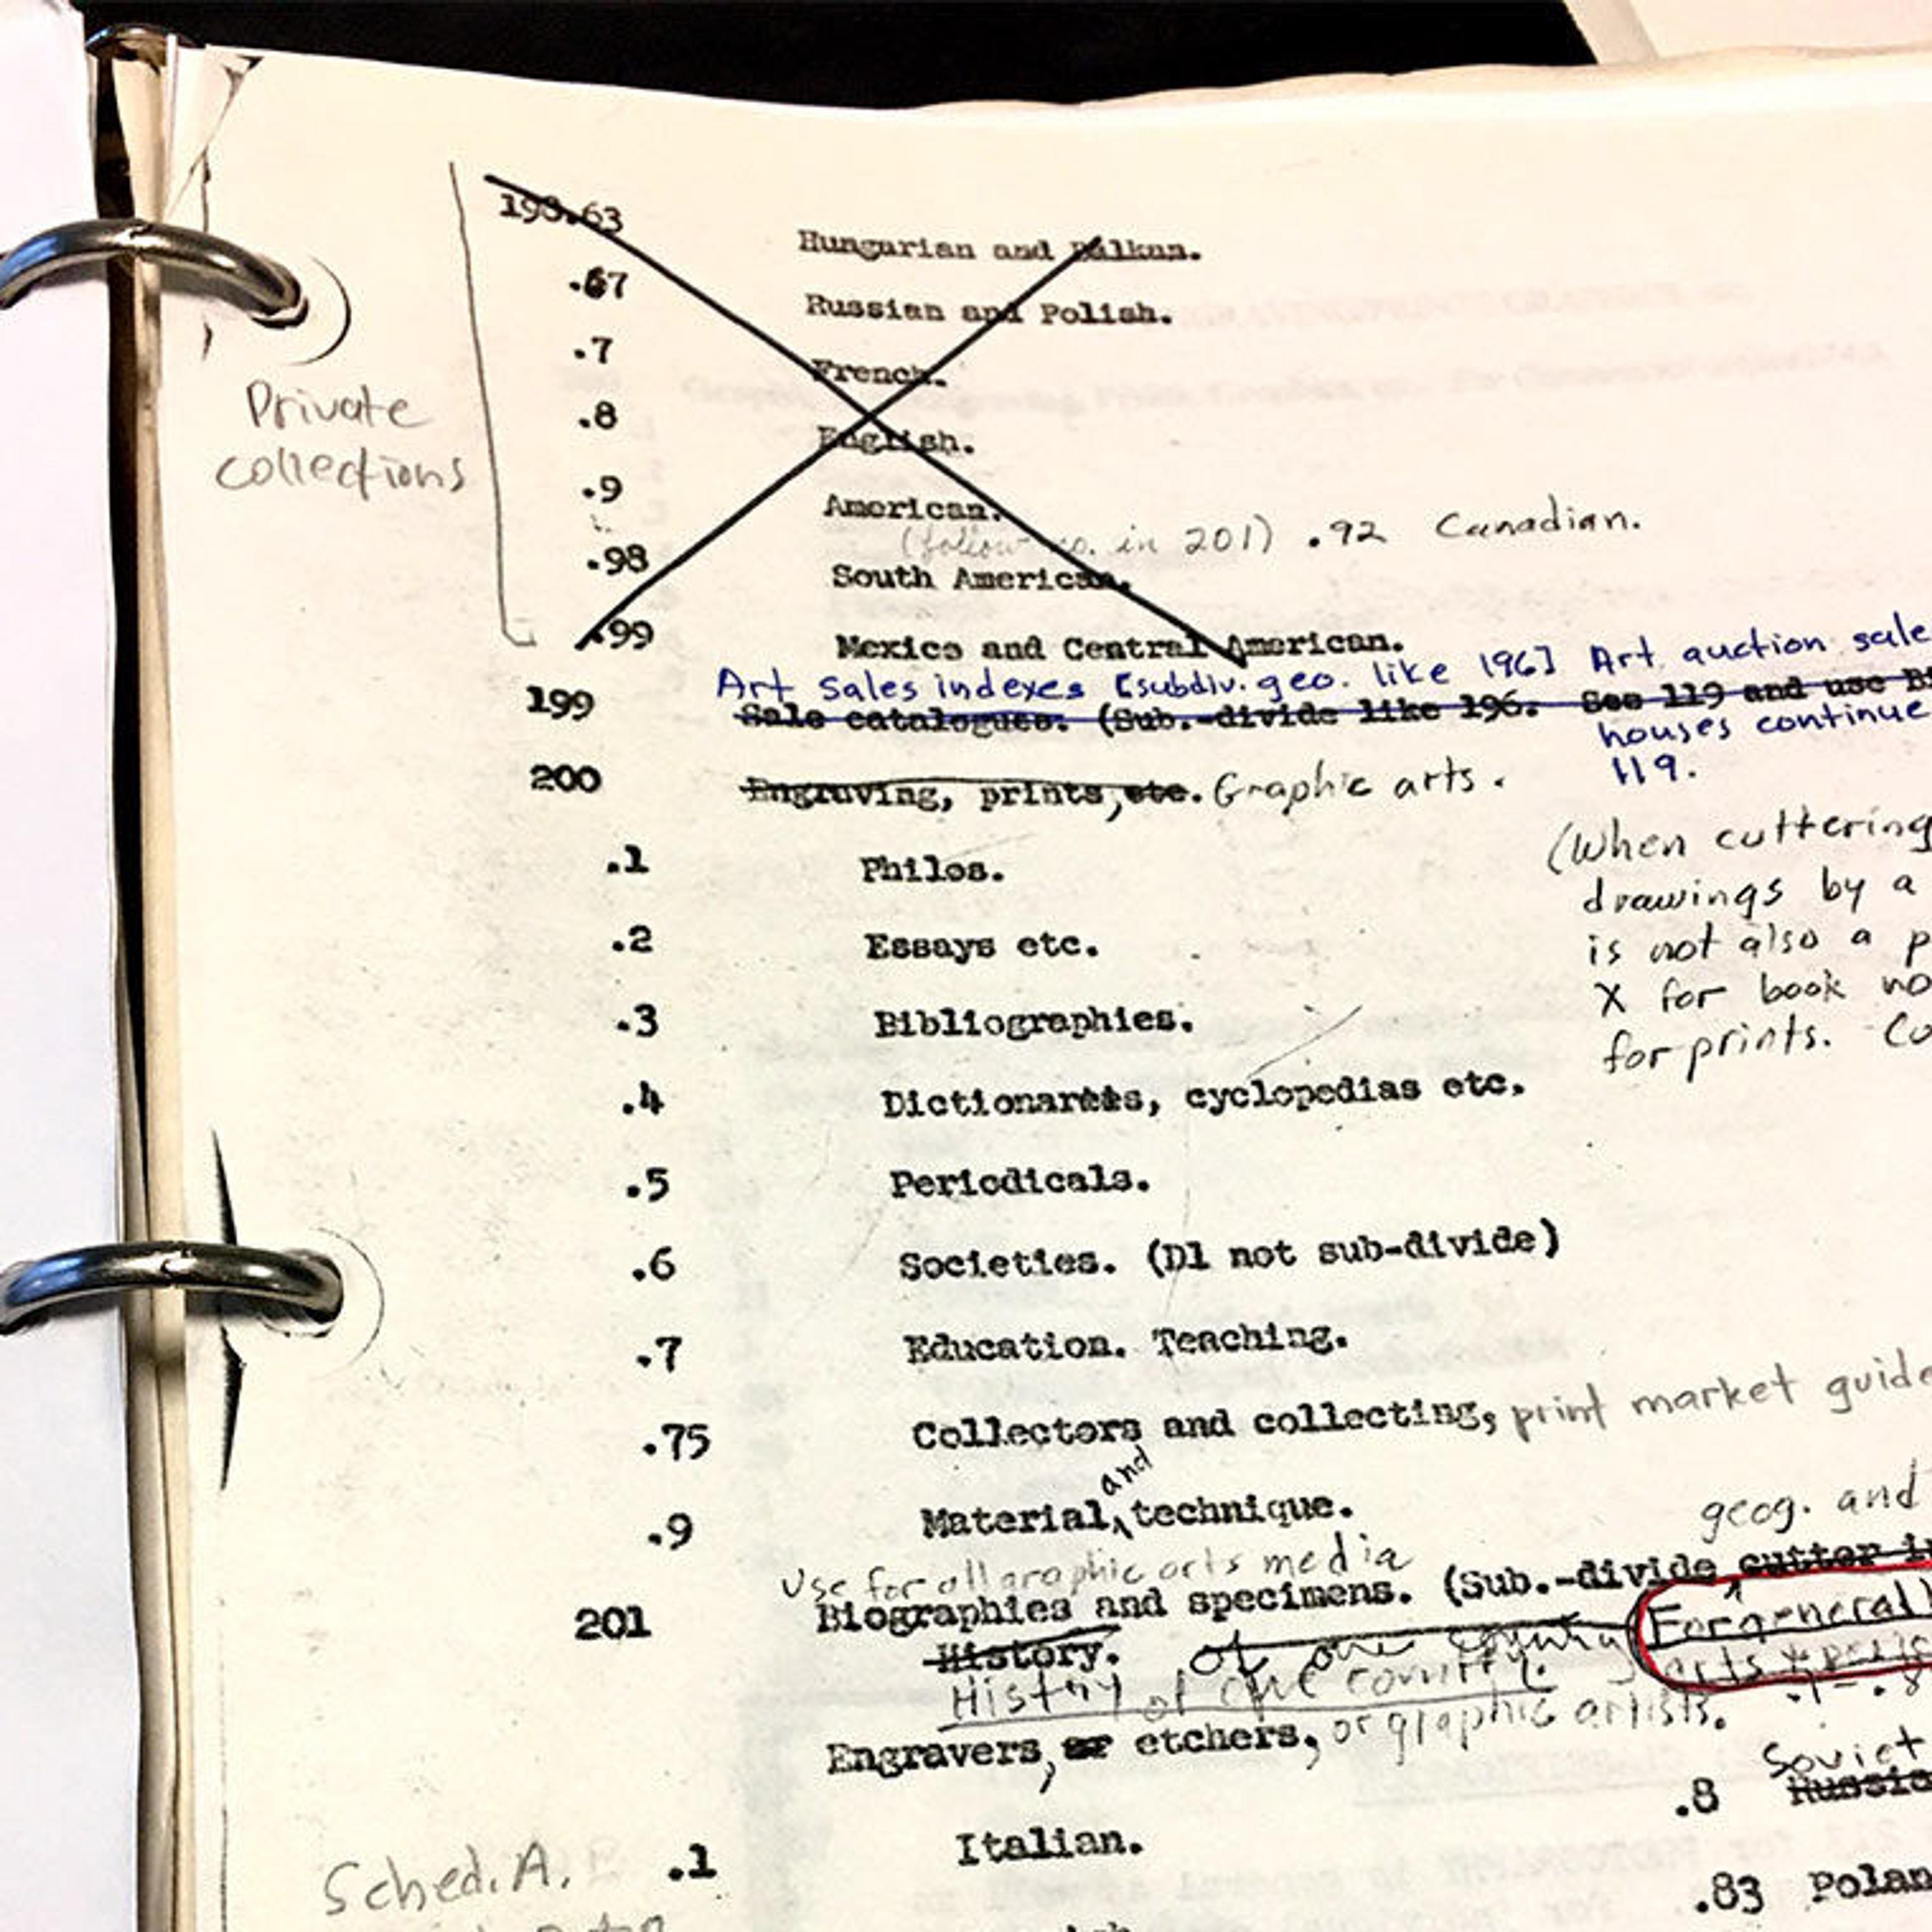 198.63 Hungarian and Balkan.
.67 Russian and Polish.
.7 French.
Private
collections
.8 English.
.9 American.
(follow in 201) .92 Canadian.
.98 South American.
.99 Mexico and Central American.
Art sales indexes [subdiv. geo. like 196] Art auction sale
199 Sale catalogues. (Sub.-divide like 196. See 119 and use
houses continue
119.
200 Engraving, prints, etc. Graphic arts.
(When cuttering
.1 Philos.
drawings by a
.2 Essays etc.
is not also a p
X for book no
.3 Bibliographies.
for prints. Co
.4 cyclopedias etc.
.5 Periodicals.
.6 Societies. (D1 not sub-divide)
.7 Education. Teaching.
.75 Collectors and collecting, print market guide
and
.9 Material, technique.
geog. and
Use for all graphic arts media
201 Biographies and specimens. (Sub.-divide cutter in
For general
History. of one country
arts
History of one country.
.1-.8
Engravers, or etchers, or graphic artists.
Soviet
.8 Russia
Sched. A. .1 Italian.
.83 Polan